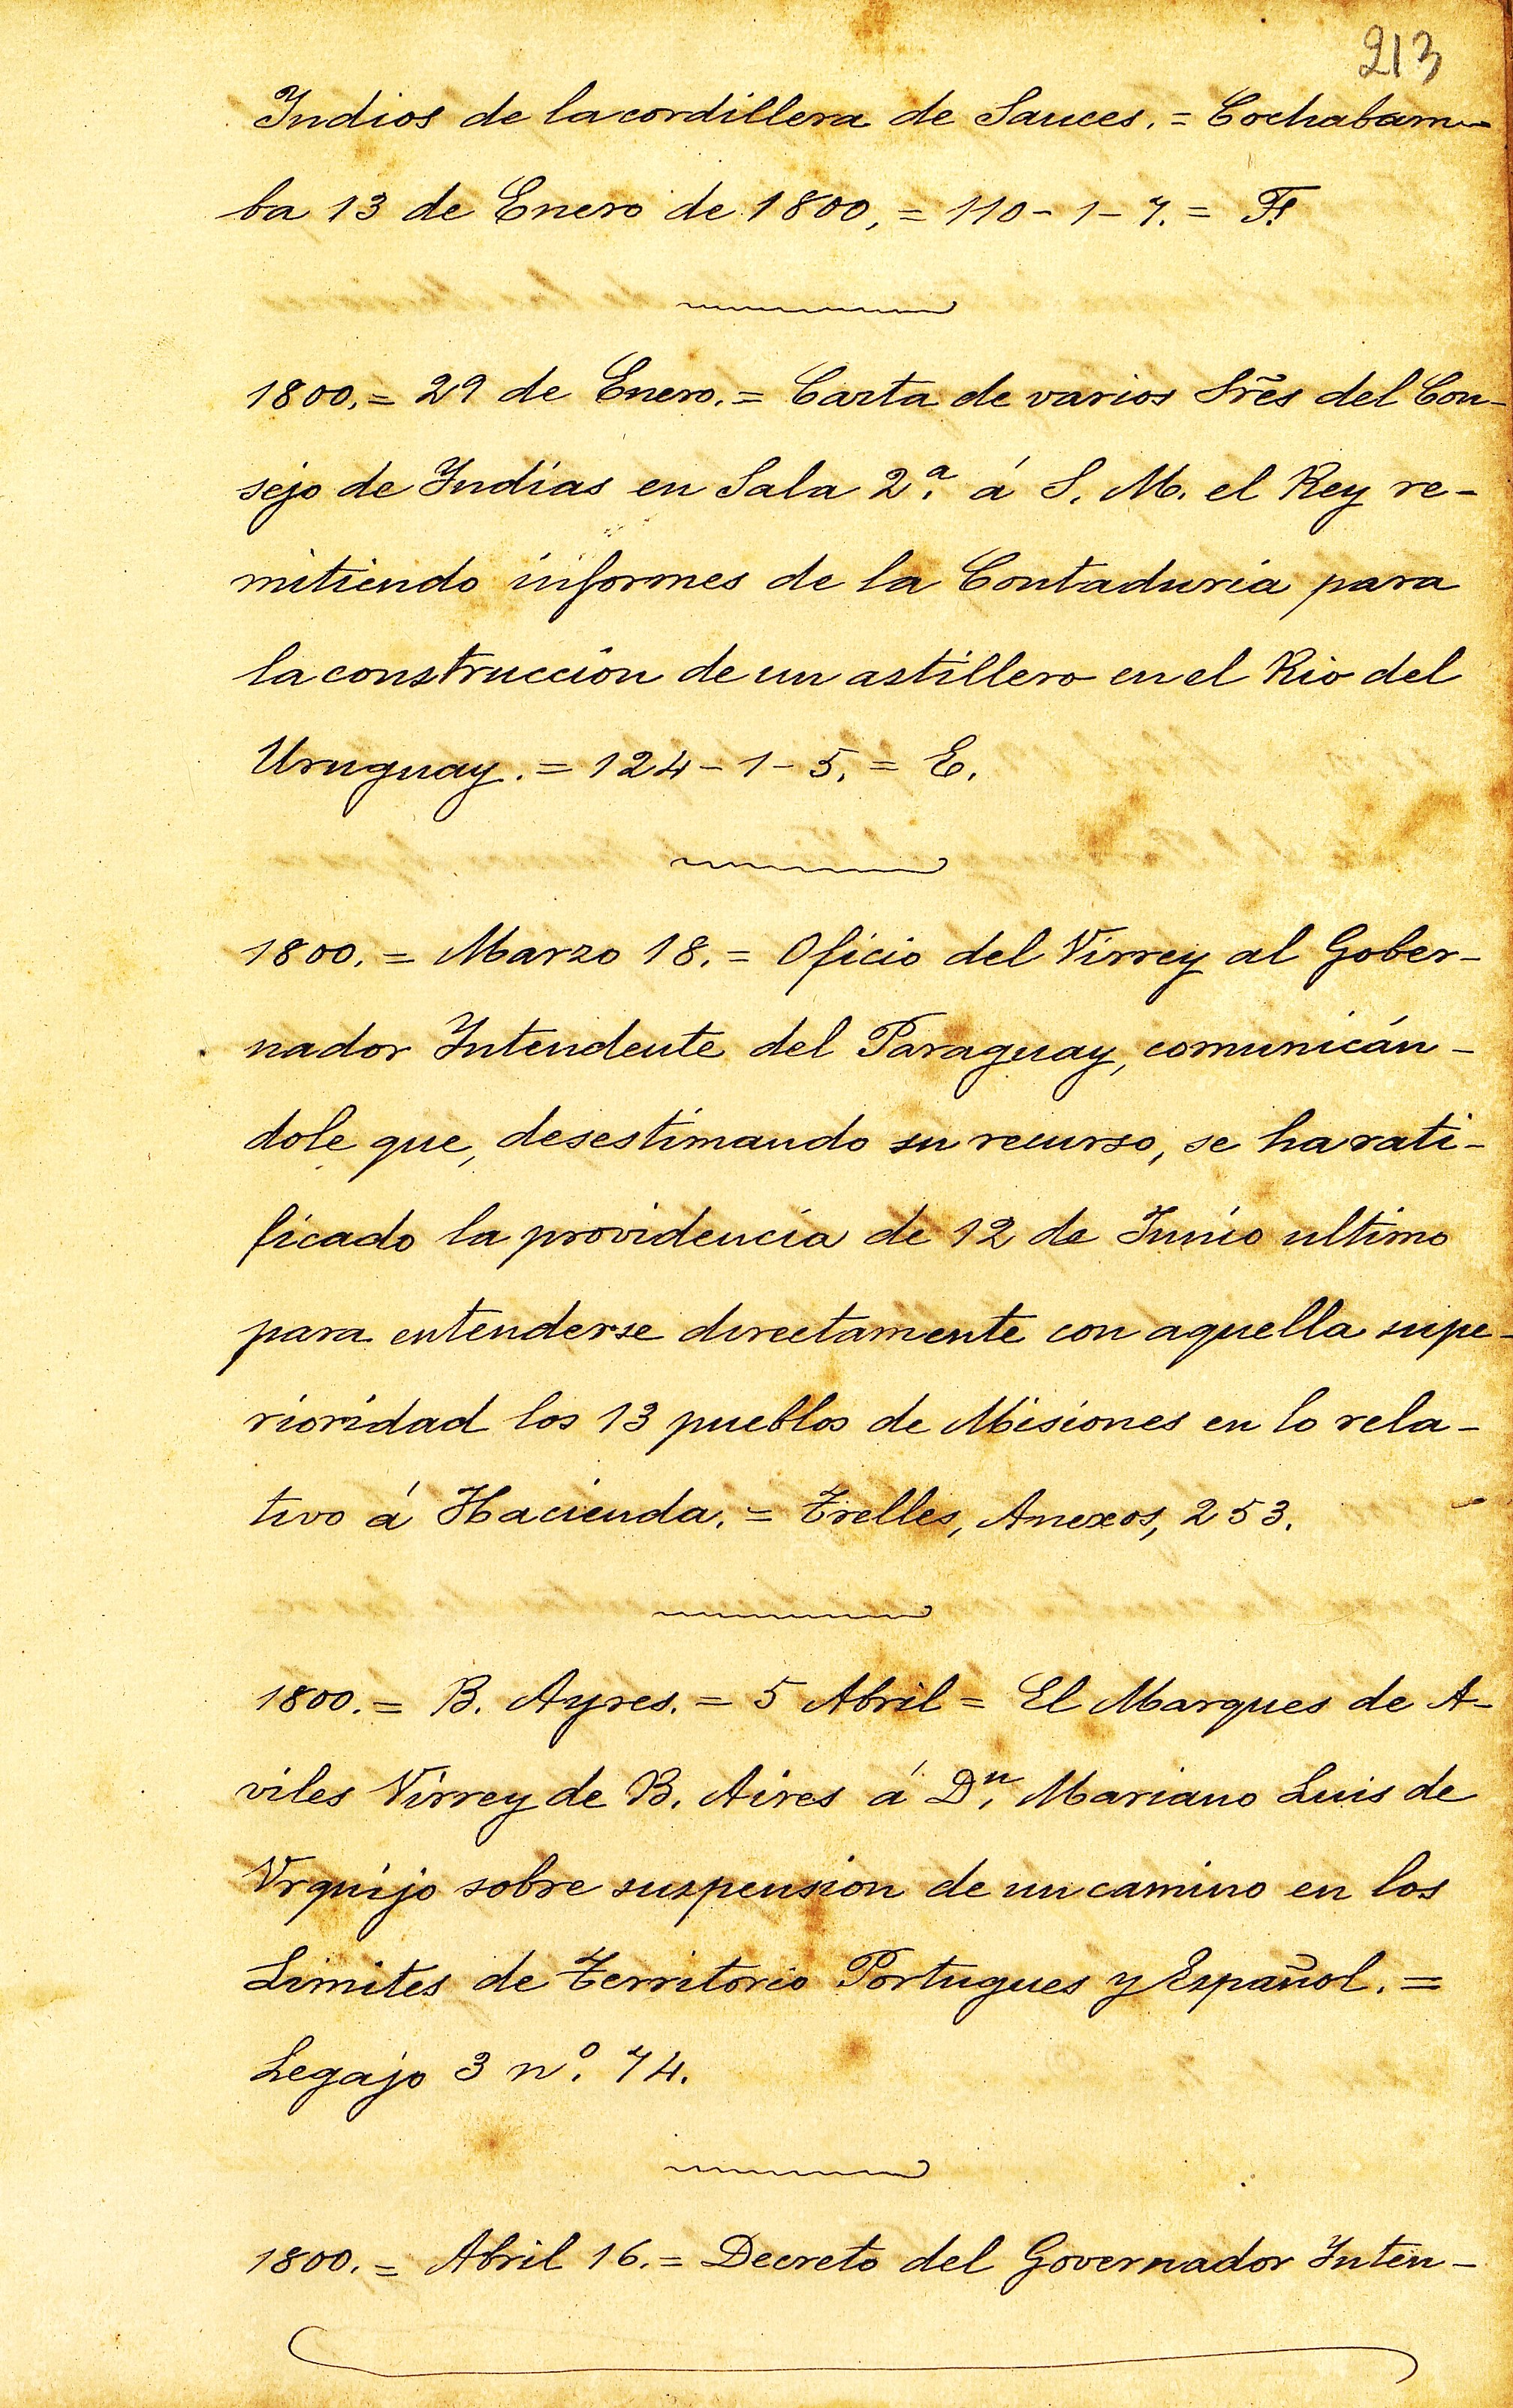 213
Indios de la cordillera de Sauces. = Cochabam-
ba 13 de Enero de 1800, = 110 - 1 - 7. = F.
1800. = 29 de Enero. = Carta de varios Srẽs del Con-
sejo de Indias en Sala 2.ª á S. M. el Rey re-
mitiendo informes de la Contaduria para
la construccion de un astillero en el Rio del
Uruguay. = 124 - 1 - 5. = E.
1800. = Marzo 18. = Oficio del Virrey al Gober-
nador Intendente del Paraguay, comunicán-
dole que, desestimando su recurso, se ha rati-
ficado la providencia de 12 de Junio ultimo
para entenderse directamente con aquella supe-
rioridad los 13 pueblos de Misiones en lo rela-
tivo á Hacienda. = Trelles, Anexos, 253.
1800. = B. Ayres. = 5 Abril = El Marques de A-
viles Virrey de B. Aires á D.ⁿ Mariano Luis de
Vrquijo sobre suspension de un camino en los
Limites de Territorio Portugues y Español. =
Legajo 3 n.º 74.
1800. = Abril 16. = Decreto del Governador Inten-